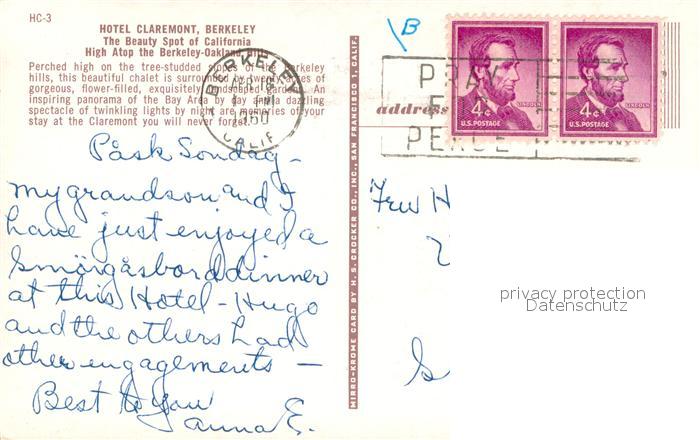 HC-3
HOTEL CLAREMONT, BERKELEY
The Beauty Spot of California
High Atop the Berkeley-Oakland Hills
Perched high on the tree-studded slopes of the Berkeley
hills, this beautiful chalet is surrounded by twenty acres of
gorgeous, flower-filled, exquisitely landscaped gardens. An
inspiring panorama of the Bay Area by day and a dazzling
spectacle of twinkling lights by night are memories of your
stay at the Claremont you will never forget.
BERKELEY
1960
CALIF
B
PRAY
FOR
PEACE
4¢
LINCOLN
U.S. POSTAGE
4¢
LINCOLN
U.S. POSTAGE
address
Påsk Sondag -
my grandson and I
have just enjoyed a
Smörgåsbord dinner
at this Hotel - Hugo
and the others had
other engagements -
Best to you
Anna E.
MIRRO-KROME CARD BY H. S. CROCKER CO., INC., SAN FRANCISCO 1, CALIF.
Frw H
S
privacy protection
Datenschutz